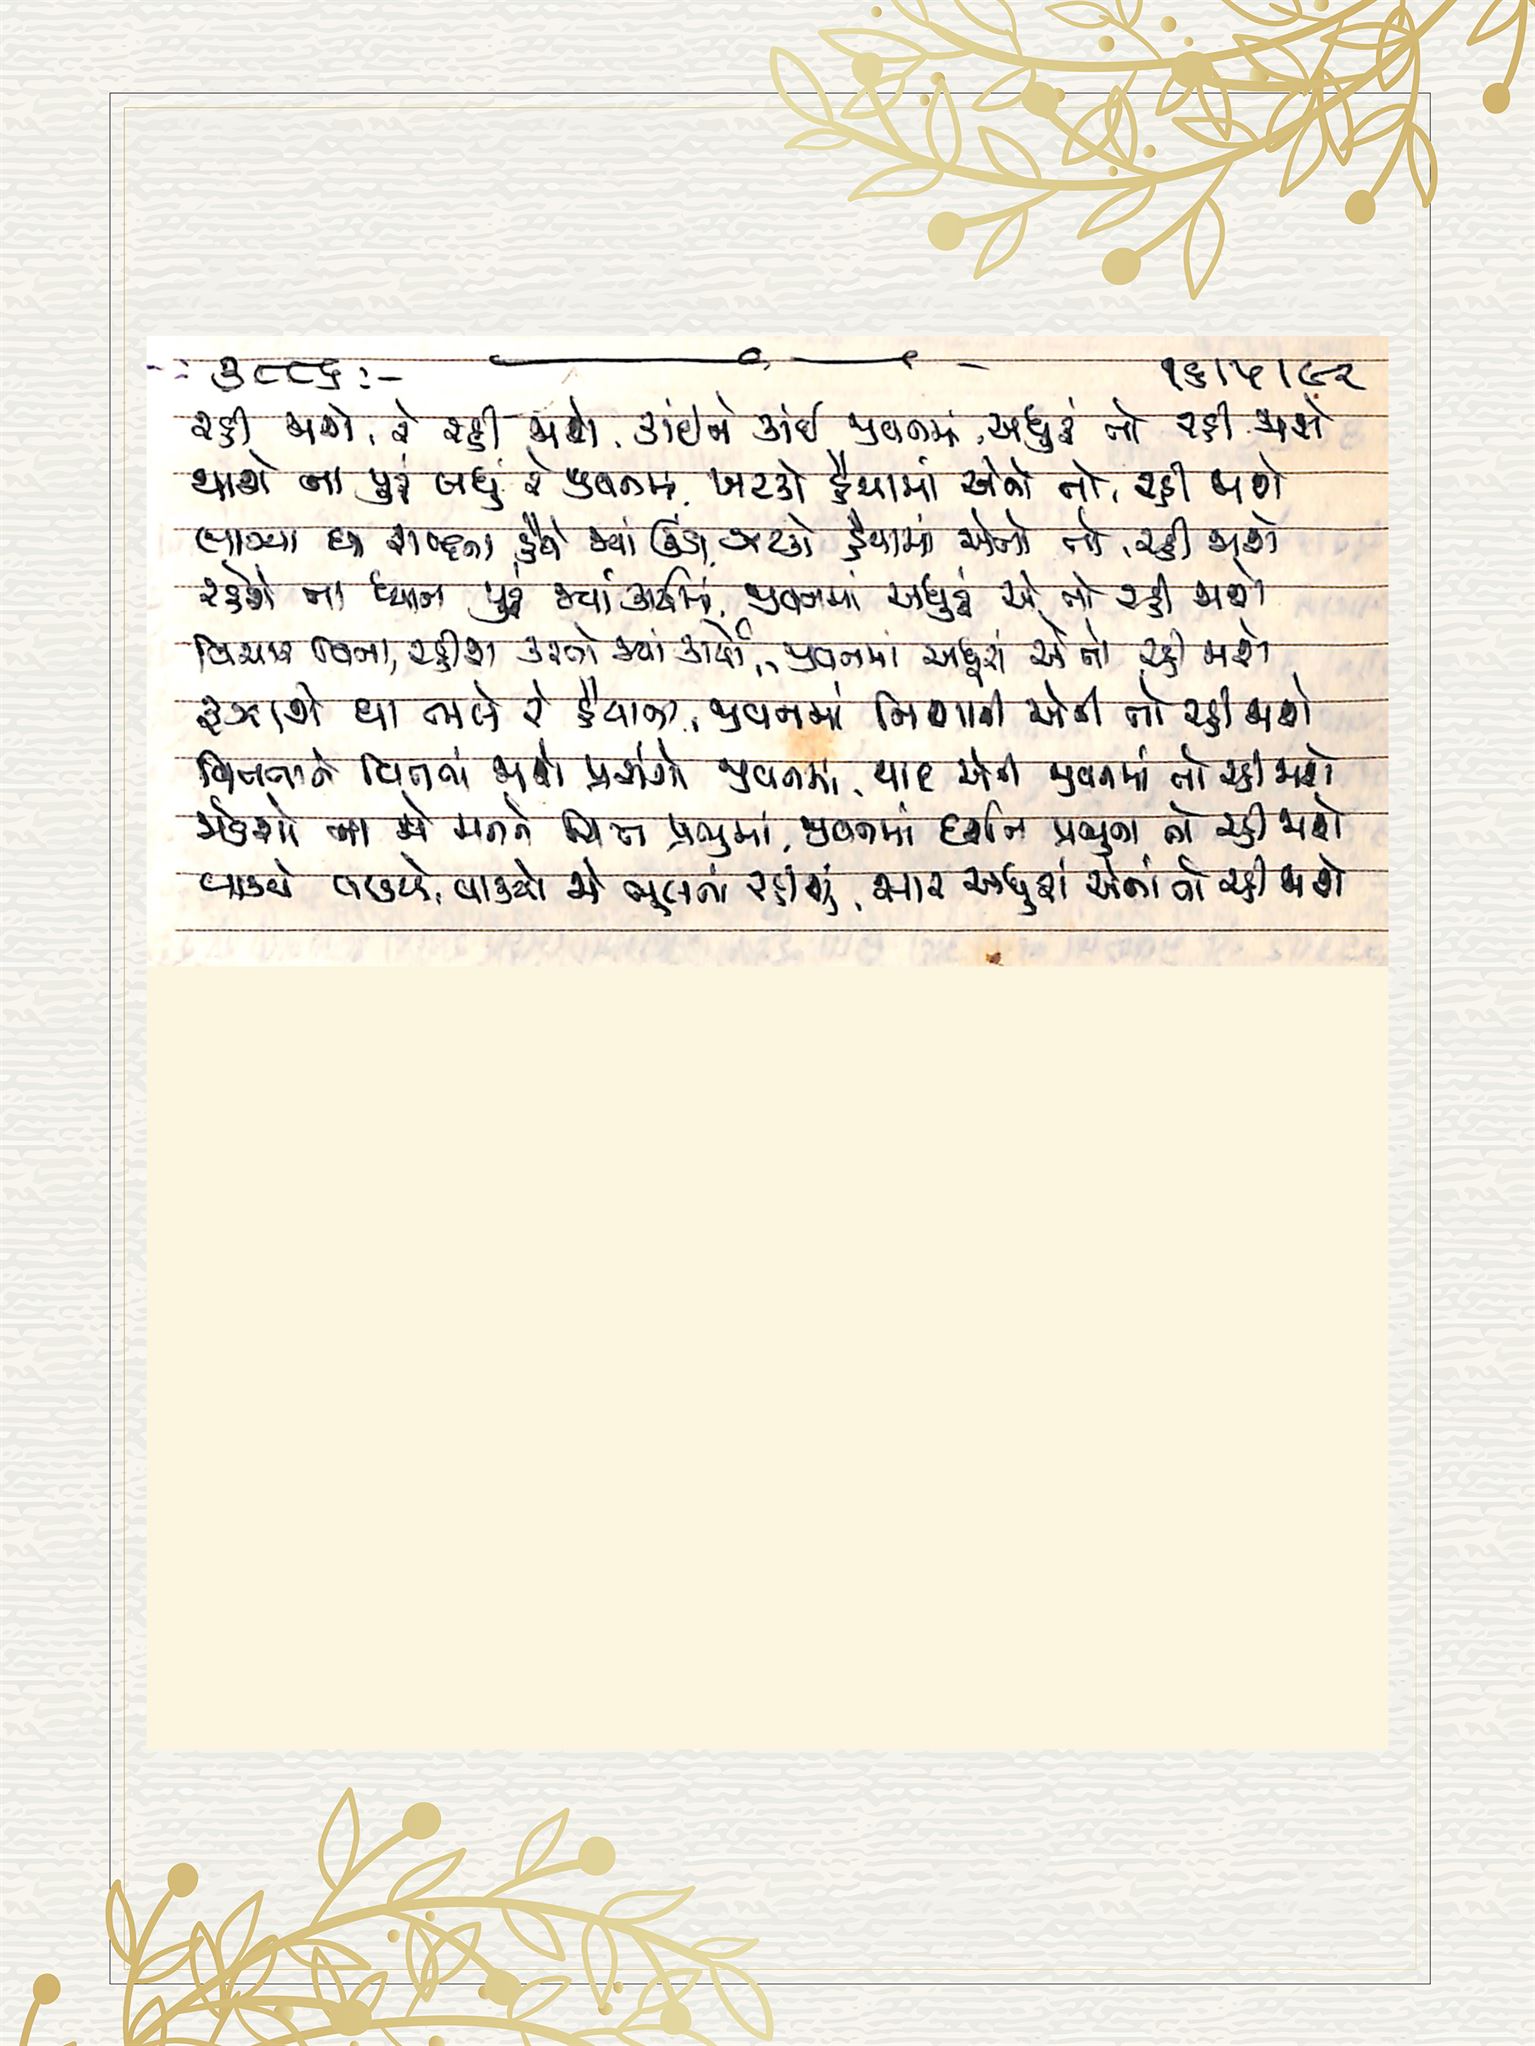 -: ૩૮૮૬ :-
૧૬/૫/૯૨
રહી જાશે, રે રહી જાશે, કાંઈને કાંઈ જીવનમાં, અધુરૂં તો રહી જાશે
થાશે ના પુરૂં બધું રે જીવનમાં, ખટકો હૈયામાં એનો તો, રહી જાશે
લાગ્યા ઘા શબ્દના હૈયે જ્યાં ઊંડા, ખટકો હૈયામાં એનો તો, રહી જાશે
રહેશે ના ધ્યાન પુરૂં જ્યાં કાર્યમાં, જીવનમાં અધુરૂં એ તો રહી જાશે
વિચાર વિના, રહીશ કરતો જ્યાં કાર્યો, જીવનમાં અધૂરાં એ તો રહી જાશે
રૂઝાશે ઘા ભલે રે હૈયાના, જીવનમાં નિશાની એની તો રહી જાશે
વિતતાને વિતતાં જાશે પ્રસંગો જીવનમાં, યાદ એની જીવનમાં તો રહી જાશે
જોડશો ના જો મનને ચિત્ત પ્રભુમાં, જીવનમાં દર્શન પ્રભુના તો રહી જાશે
વાક્યે વાક્યો જો ભૂલતાં રહીશું, સાર અધુરાં એનાં તો રહી જાશે